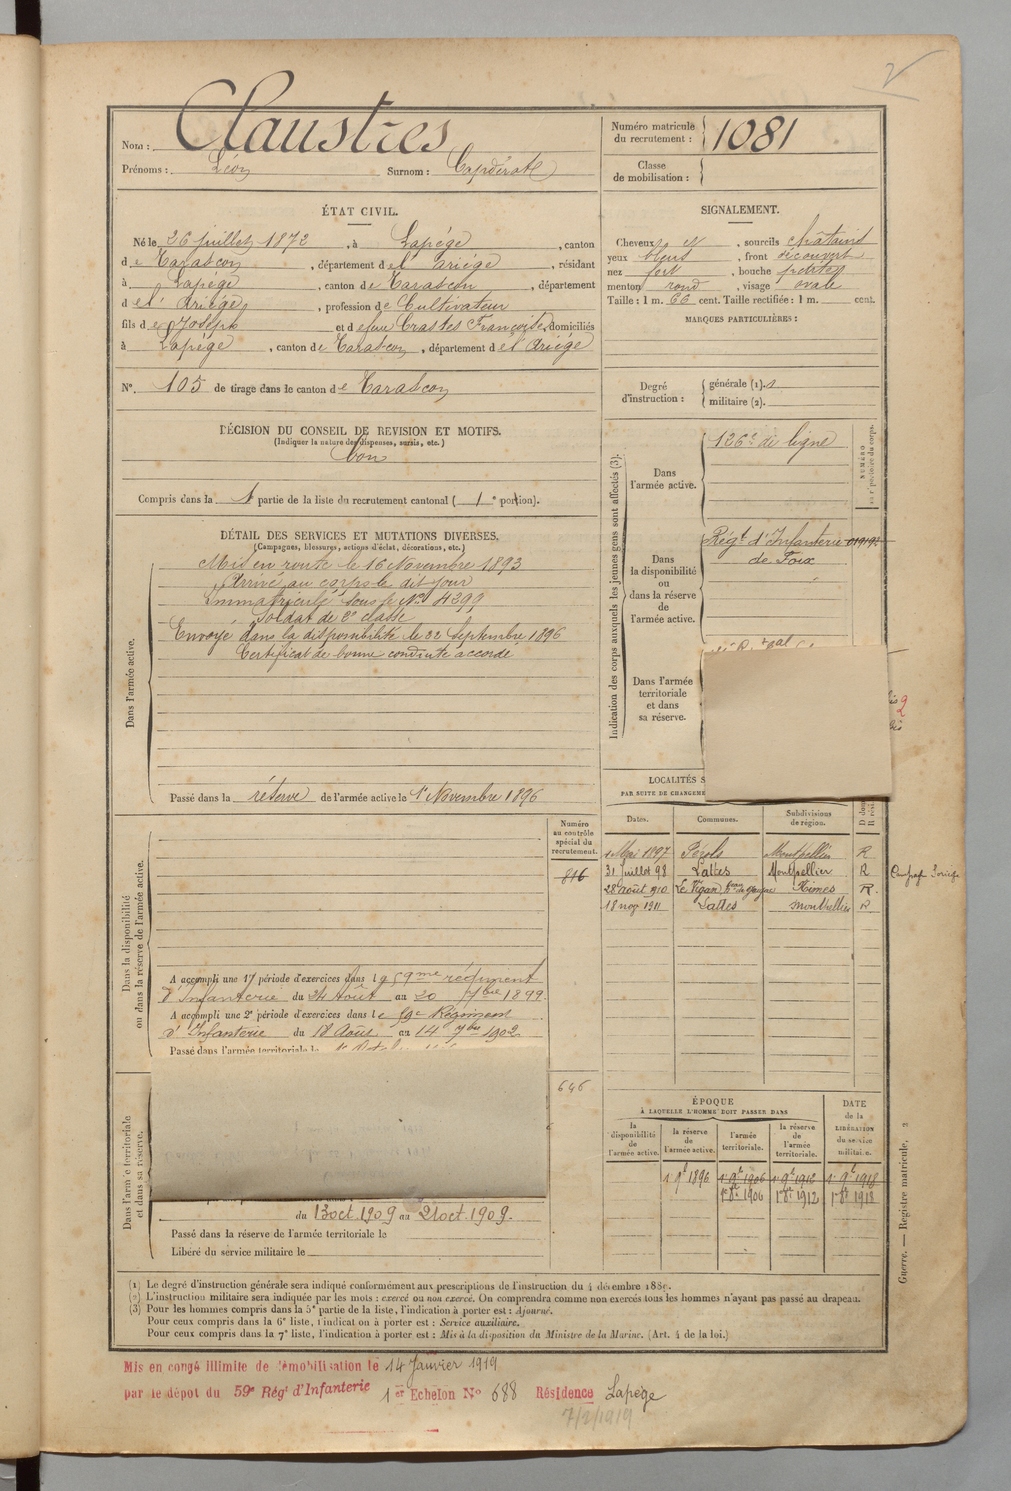 Nom : Claustres
Prénoms : Léon Surnom : Capdérat
Numéro matricule du recrutement : 1081
Classe de mobilisation :
ÉTAT CIVIL.
Né le 26 juillet 1872, à Lapège, canton
de Tarascon, département de l'ariége, résidant
à Lapège, canton de Tarascon, département
de l'Ariége, profession de Cultivateur
fils de Joseph et de feue Crastes Françoise, domiciliés
à Lapège, canton de Tarascon, département de l'Ariége
N° 105 de tirage dans le canton de Tarascon
SIGNALEMENT.
Cheveux et, sourcils châtains
yeux bleus, front découvert
nez fort, bouche petite
menton rond, visage ovale
Taille : 1 m. 66 cent. Taille rectifiée : 1 m. cent.
MARQUES PARTICULIÈRES :
Degré d'instruction : générale (1).
militaire (2).
DÉCISION DU CONSEIL DE REVISION ET MOTIFS.
(Indiquer la nature des dispenses, sursis, etc.)
bon
Compris dans la 1 partie de la liste du recrutement cantonal ( 1e portion).
DÉTAIL DES SERVICES ET MUTATIONS DIVERSES.
(Campagnes, blessures, actions d'éclat, décorations, etc.)
Dans l'armée active.
Mis en route le 16 Novembre 1893
Arrivé au corps le dit jour
Immatriculé sous le N° 4299
Soldat de 2e classe
Envoyé dans la disponibilité le 22 Septembre 1896
Certificat de bonne conduite accordé
Passé dans la réserve de l'armée active le 1r Novembre 1896
Indication des corps auxquels les jeunes gens sont affectés (3).
Dans l'armée active.
126e de ligne
NUMÉRO au répertoire du corps.
Dans la disponibilité ou dans la réserve de l'armée active.
Régt d'Infanterie
de Foix
Dans l'armée territoriale et dans sa réserve.
LOCALITÉS S
PAR SUITE DE CHANGEME
Dates. Communes. Subdivisions de région.
1 Mai 1897 Pérols Montpellier R
31 Juillet 98 Lattes Montpellier R
28 août 1910 Le Vigan Nîmes R.
18 nov 1911 Lattes Montpellier R
Dans la disponibilité ou dans la réserve de l'armée active.
Numéro au contrôle spécial du recrutement.
816
A accompli une 1re période d'exercices dans le 59me régiment
d'Infanterie du 24 Août au 20 7bre 1899.
A accompli une 2e période d'exercices dans le 59e Régiment
d'Infanterie du 18 Août au 14 7bre 1902
Passé dans l'armée territoriale le
646
Dans l'armée territoriale et dans sa réserve.
du 13 oct. 1909 au 21 oct. 1909.
Passé dans la réserve de l'armée territoriale le
Libéré du service militaire le
ÉPOQUE
À LAQUELLE L'HOMME DOIT PASSER DANS
la disponibilité de l'armée active. la réserve de l'armée active. l'armée territoriale. la réserve de l'armée territoriale. DATE de la LIBÉRATION du service militaire.
1r 9b 1896 1r 9b 1906 1r 9b 1912 1r 9b 1918
1r 8b 1906 1r 8br 1912 1r 8b 1918
Guerre. — Registre matricule, 2
(1) Le degré d'instruction générale sera indiqué conformément aux prescriptions de l'instruction du 4 décembre 1889.
(2) L'instruction militaire sera indiquée par les mots : exercé ou non exercé. On comprendra comme non exercés tous les hommes n'ayant pas passé au drapeau.
(3) Pour les hommes compris dans la 5e partie de la liste, l'indication à porter est : Ajourné.
Pour ceux compris dans la 6e liste, l'indication à porter est : Service auxiliaire.
Pour ceux compris dans la 7e liste, l'indication à porter est : Mis à la disposition du Ministre de la Marine. (Art. 4 de la loi.)
Mis en congé illimité de démobilisation le 14 Janvier 1919
par le dépot du 59e Régt d'Infanterie 1er Echelon N° 688 Résidence Lapège
7/2/1919